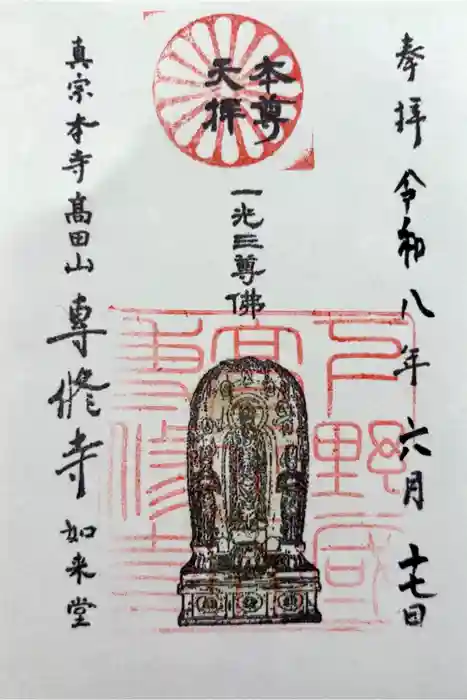 奉拝 令和八年 六月 十七日
本尊
天拝
一光三尊佛
真宗本寺髙田山 専修寺 如来堂
下野國
髙
専修寺